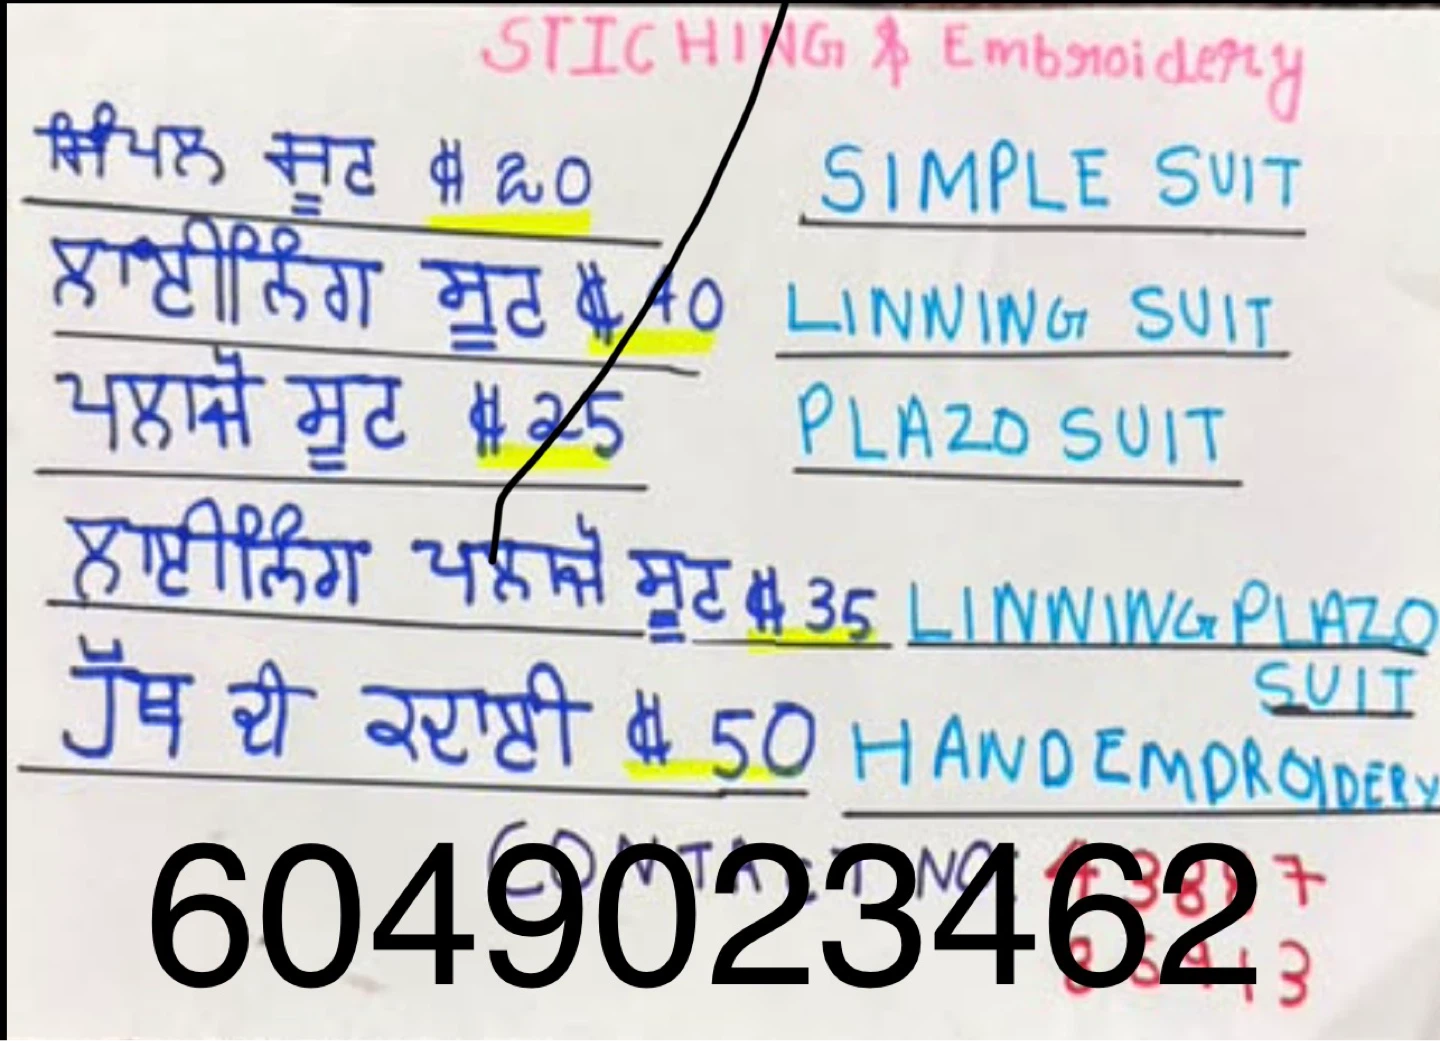 STICHING & Embroidery
ਸਿੰਪਲ ਸੂਟ $ 20 SIMPLE SUIT
ਲਾਈਲਿੰਗ ਸੂਟ $ 40 LINNING SUIT
ਪਲਾਜੋ ਸੂਟ $ 25 PLAZO SUIT
ਲਾਈਲਿੰਗ ਪਲਾਜੋ ਸੂਟ $ 35 LINNING PLAZO
SUIT
ਹੱਥ ਦੀ ਕਢਾਈ $ 50 HAND EMDROIDERY
CONTACT NO:
6049023462